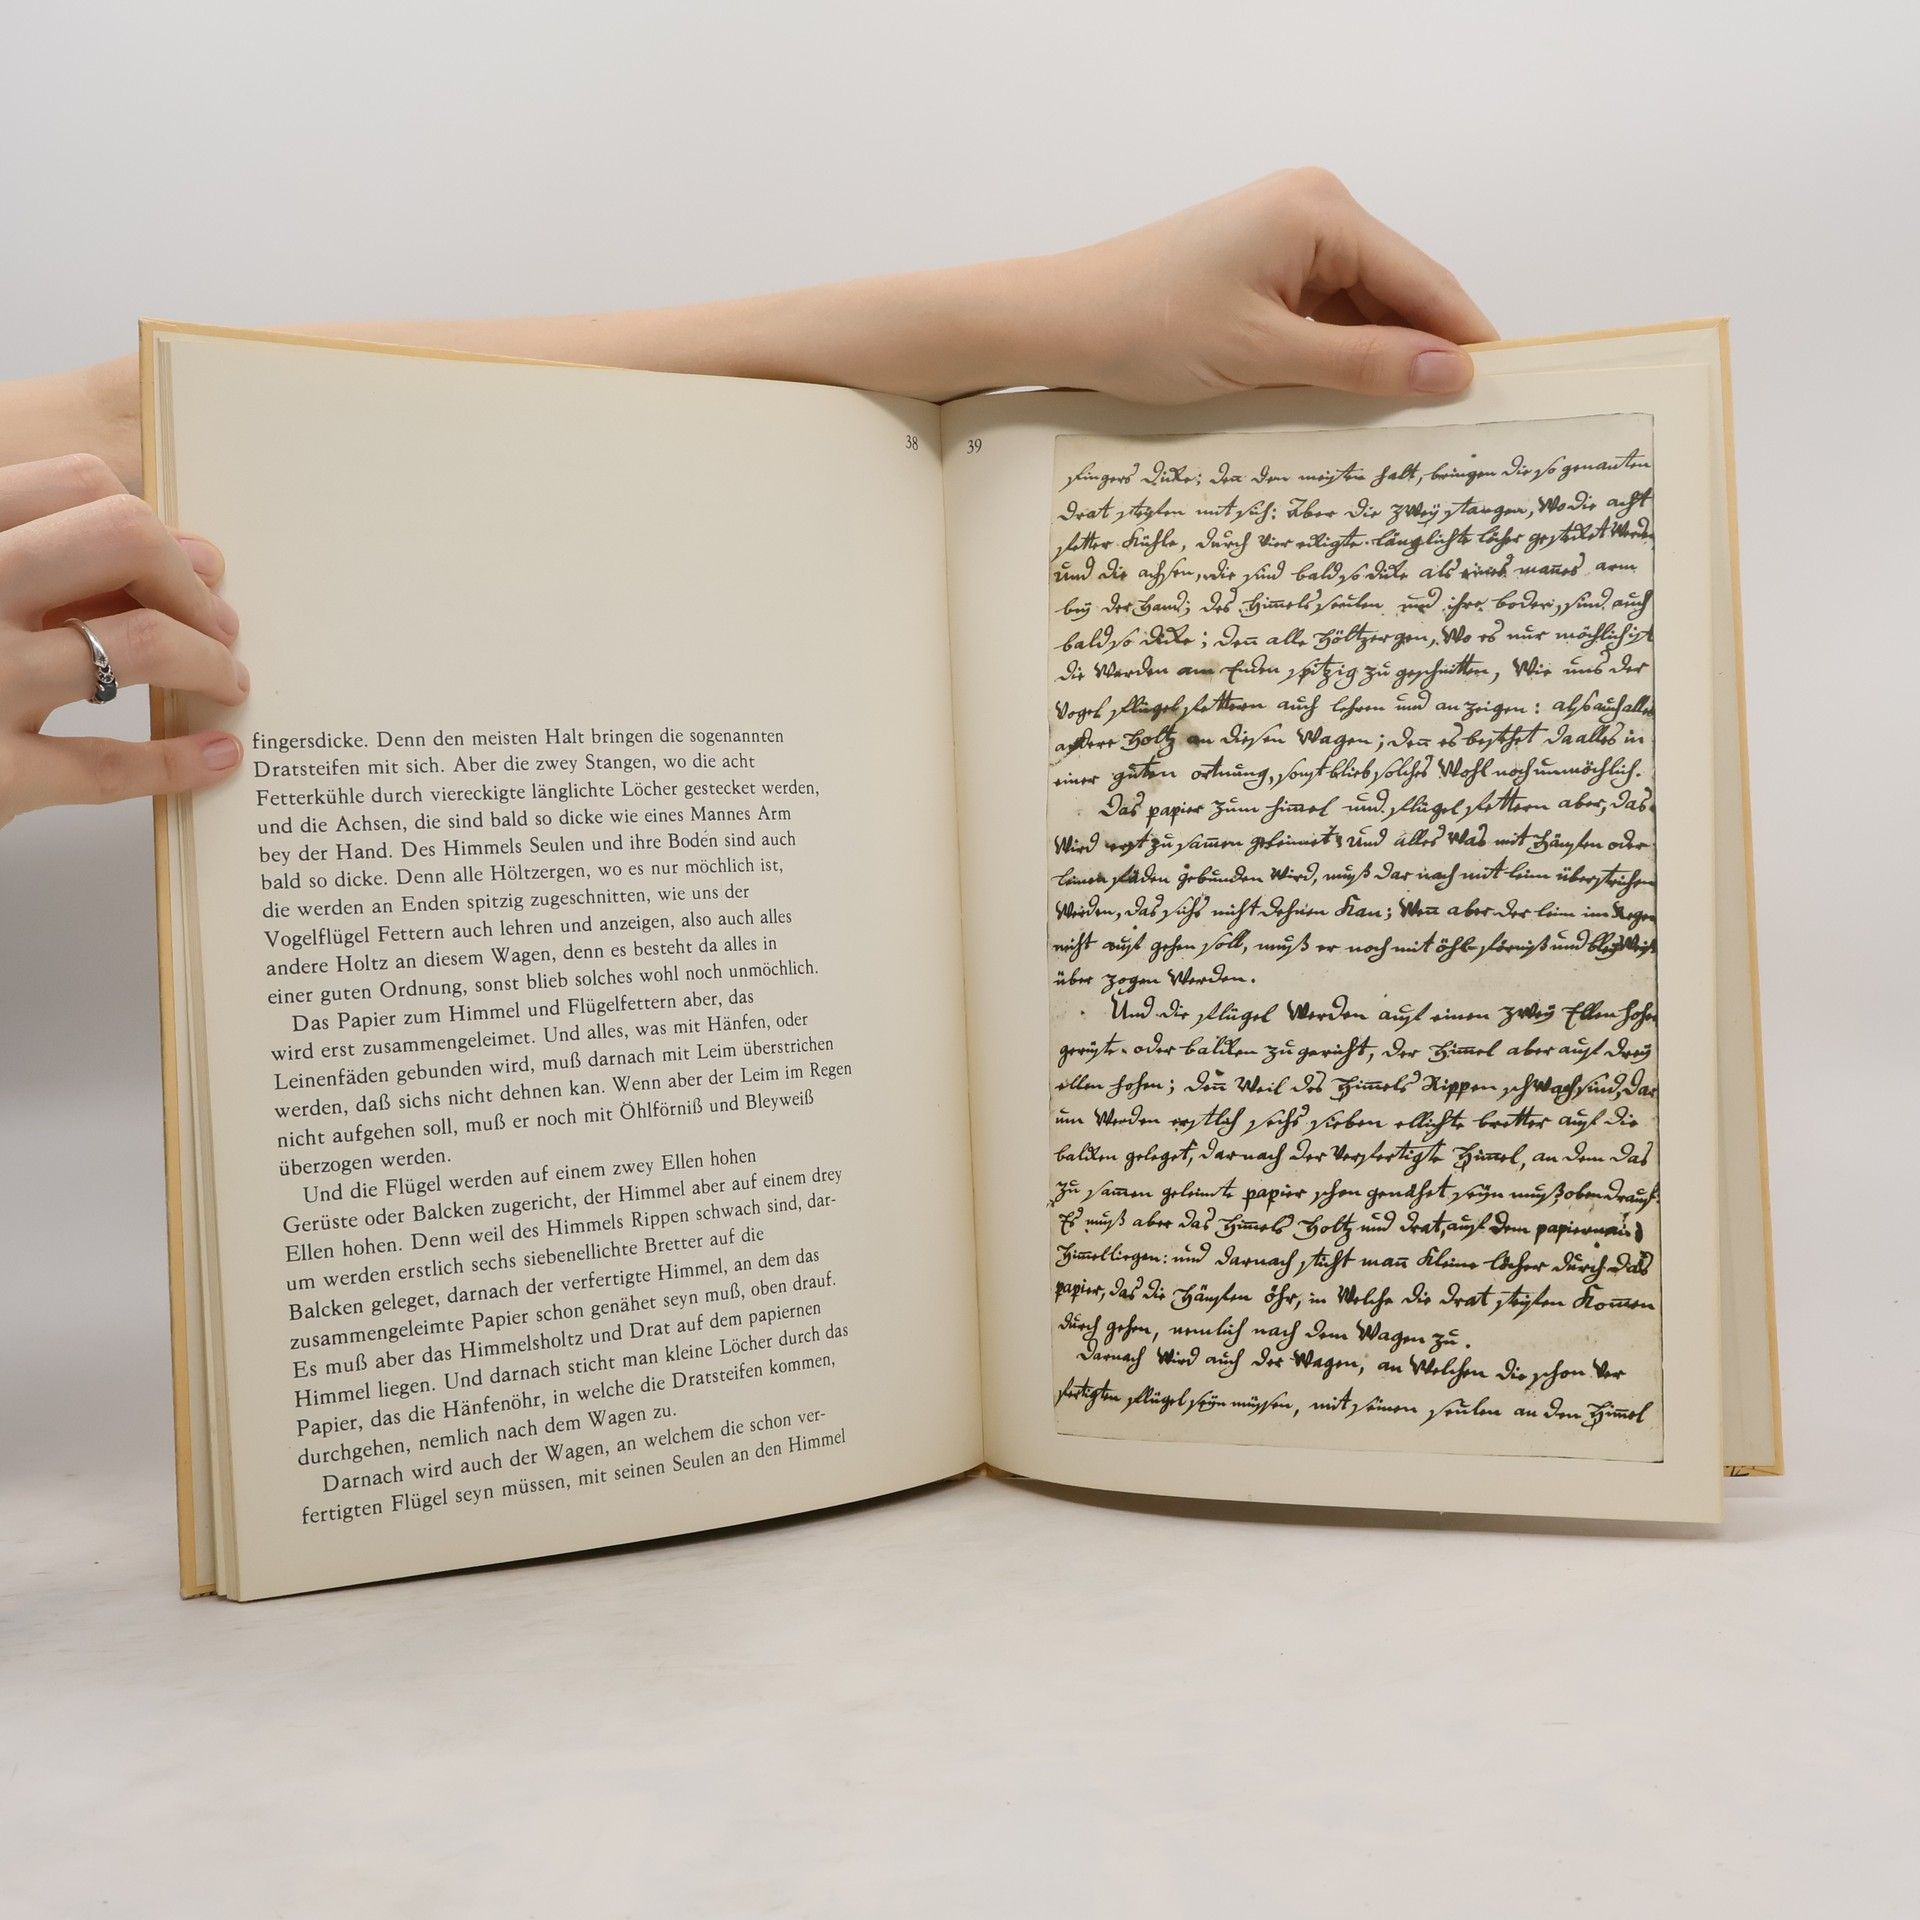 38
fingersdicke. Denn den meisten Halt bringen die sogenannten
Dratsteifen mit sich. Aber die zwey Stangen, wo die acht
Fetterkühle durch viereckigte länglichte Löcher gestecket werden,
und die Achsen, die sind bald so dicke wie eines Mannes Arm
bey der Hand. Des Himmels Seulen und ihre Boden sind auch
bald so dicke. Denn alle Höltzergen, wo es nur möchlich ist,
die werden an Enden spitzig zugeschnitten, wie uns der
Vogelflügel Fettern auch lehren und anzeigen, also auch alles
andere Holtz an diesem Wagen, denn es besteht da alles in
einer guten Ordnung, sonst blieb solches wohl noch unmöchlich.
Das Papier zum Himmel und Flügelfettern aber, das
wird erst zusammengeleimet. Und alles, was mit Hänfen, oder
Leinenfäden gebunden wird, muß darnach mit Leim überstrichen
werden, daß sichs nicht dehnen kan. Wenn aber der Leim im Regen
nicht aufgehen soll, muß er noch mit Öhlförniß und Bleyweiß
überzogen werden.
Und die Flügel werden auf einem zwey Ellen hohen
Gerüste oder Balcken zugericht, der Himmel aber auf einem drey
Ellen hohen. Denn weil des Himmels Rippen schwach sind, dar-
um werden erstlich sechs siebenellichte Bretter auf die
Balcken geleget, darnach der verfertigte Himmel, an dem das
zusammengeleimte Papier schon genähet seyn muß, oben drauf.
Es muß aber das Himmelsholtz und Drat auf dem papiernen
Himmel liegen. Und darnach sticht man kleine Löcher durch das
Papier, das die Hänfenöhr, in welche die Dratsteifen kommen,
durchgehen, nemlich nach dem Wagen zu.
Darnach wird auch der Wagen, an welchem die schon ver-
fertigten Flügel seyn müssen, mit seinen Seulen an den Himmel
39
fingers dicke; den den meisten halt, bringen die so genanten
drat steifen mit sich: Aber die zwey stangen, wo die acht
fetter Kühle, durch vier eckigte länglichte löcher gestecket werden
und die achsen, die sind bald so dicke als eines manes arm
bey der Hand; des Himels seulen und ihre boden, sind auch
bald so dicke; den alle Höltzergen, wo es nur möchlich ist
die werden am Enden spitzig zu geschnitten, wie uns der
Vogel flügel fettern auch lehren und an zeigen: also auch alles
andere Holtz an diesen Wagen; den es bestehet da alles in
einer guten ortnung, sonst blieb solches wohl noch unmöchlich.
Das papier zum himel und flügel fettern aber, das
wird erst zu samen geleimet; und alles was mit Hänfen oder
leinen fäden gebunden wird, muß dar nach mit leim überstrichen
werden, das sichs nicht dehnen kan; wen aber der leim im Regen
nicht auf gehen soll, muß er noch mit öhl förniß und bleyweiß
über zogen werden.
Und die flügel werden auf einen zwey Ellen hohen
gerüste oder balcken zu gericht, der Himel aber auf drey
ellen hohen; den weil des Himels Rippen schwach sind, dar
um werden erstlich sechs sieben ellichte bretter auf die
balcken geleget, dar nach der verfertigte Himel, an dem das
zu samen geleimte papier schon genähet seyn muß oben drauf.
Es muß aber das Himels Holtz und drat, auf dem papiernen
Himel liegen: und darnach sticht man kleine löcher durch das
papier, das die Hänfen öhr, in welche die drat steifen komen
durch gehen, nemlich nach dem Wagen zu.
Darnach wird auch der Wagen, an welchen die schon ver
fertigten flügel seyn müssen, mit seinen seulen an den Himel